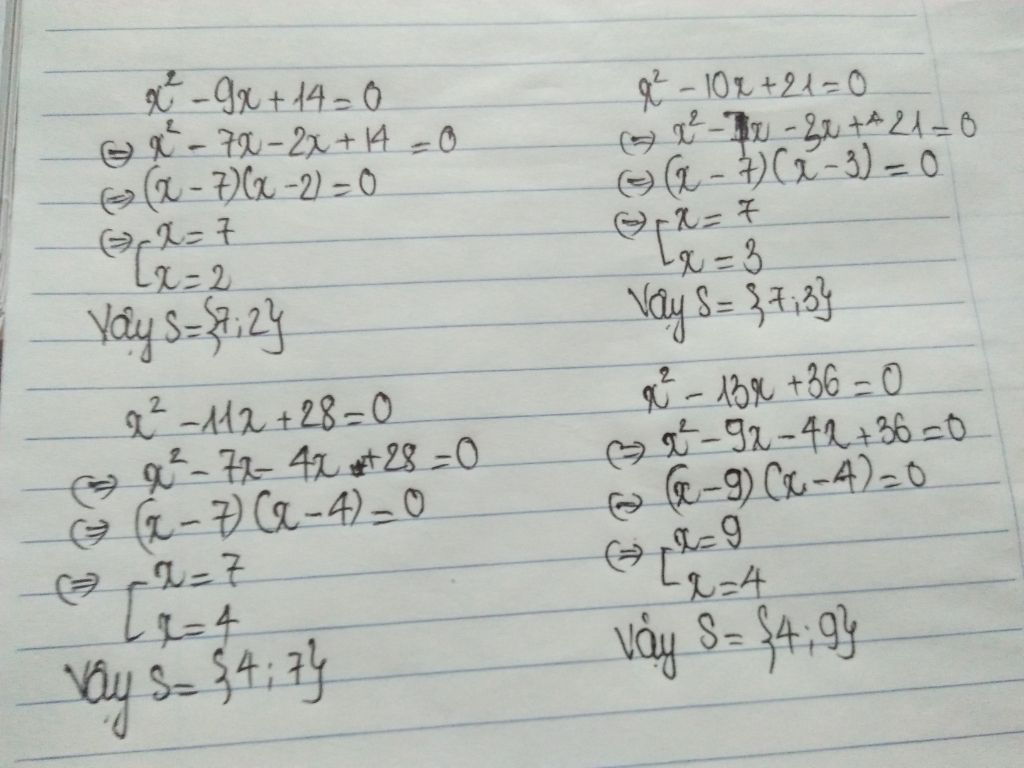 x² - 9x + 14 = 0
⇔ x² - 7x - 2x + 14 = 0
⇔ (x - 7)(x - 2) = 0
⇔ [ x = 7
x = 2
Vậy S = {7; 2}
x² - 10x + 21 = 0
⇔ x² - 7x - 3x + 21 = 0
⇔ (x - 7)(x - 3) = 0
⇔ [ x = 7
x = 3
Vậy S = {7; 3}
x² - 11x + 28 = 0
⇔ x² - 7x - 4x + 28 = 0
⇔ (x - 7)(x - 4) = 0
⇔ [ x = 7
x = 4
Vậy S = {4; 7}
x² - 13x + 36 = 0
⇔ x² - 9x - 4x + 36 = 0
⇔ (x - 9)(x - 4) = 0
⇔ [ x = 9
x = 4
Vậy S = {4; 9}